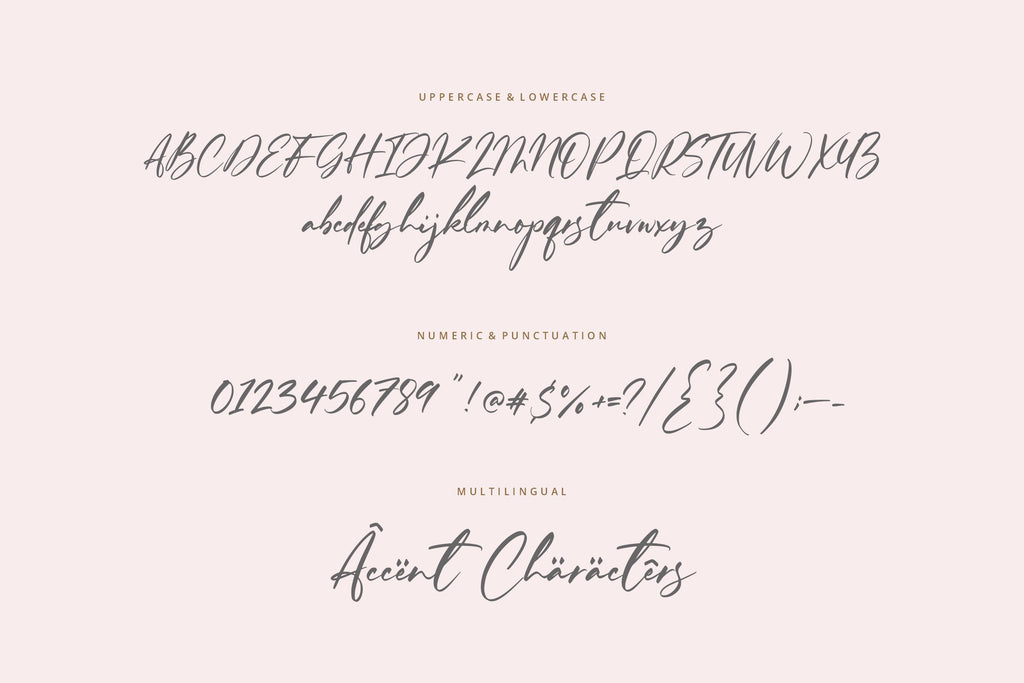 UPPERCASE & LOWERCASE
ABCDEFGHIJKLMNOPQRSTUVWXYZ
abcdefghijklmnopqrstuvwxyz
NUMERIC & PUNCTUATION
0123456789 " ! @ # $ % + = ? / { } ( ) ; — -
MULTILINGUAL
Âccënt Chäräctêrs